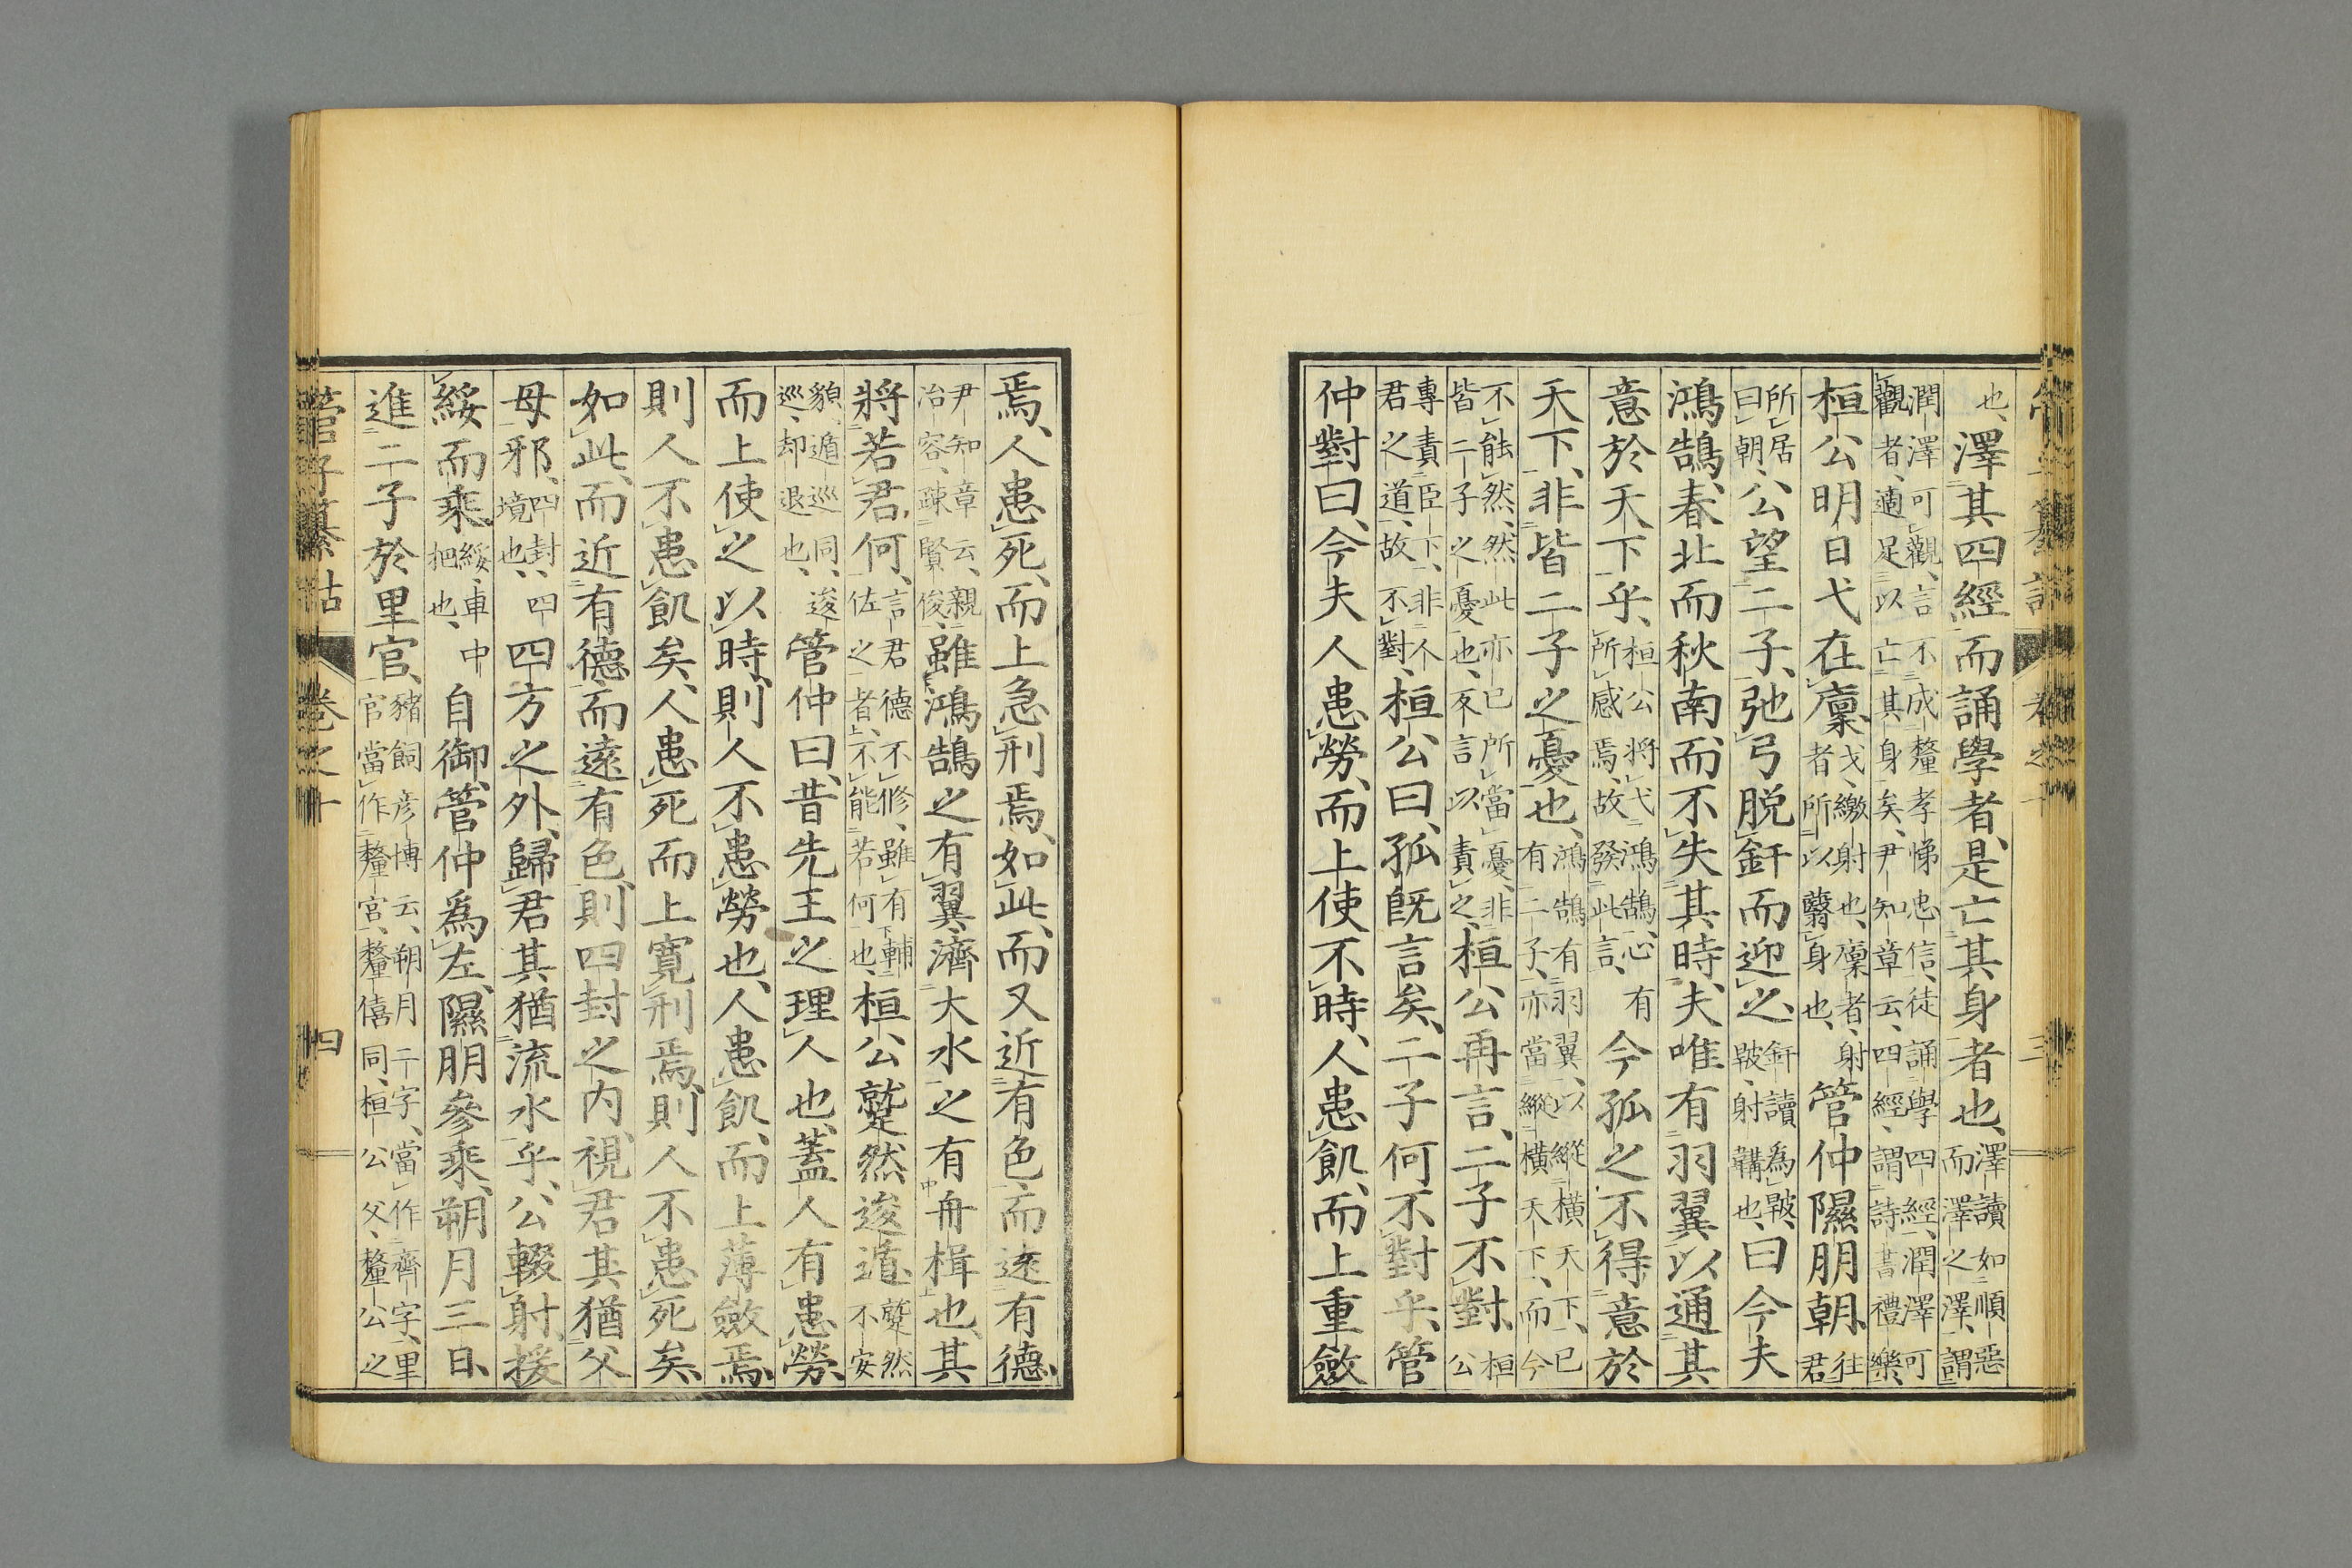 管子纂詁　卷之十　三
也、澤其四經而誦學者、是亡其身者也、澤讀如順惡而澤之澤、謂
潤澤可觀、言不成釐孝悌忠信、徒誦學四經、潤澤可
觀者、適足以亡其身矣、尹知章云、四經、謂詩書禮樂、
桓公明日弋在廩、弋、繳射也、廩者、射者所以翳身也、管仲隰朋朝、往君
所居曰朝、公望二子、弛弓脱釬而迎之、釬讀為、射韝也、曰今夫
鴻鵠、春北而秋南、而不失其時、夫唯有羽翼以通其
意於天下乎、桓公將弋鴻鵠、心有所感焉、故發此言、今孤之不得意於
天下、非皆二子之憂也、鴻鵠有羽翼、以縱橫天下、已有二子、亦當縱橫天下、而今
不能然、然此亦已所當憂、非皆二子之憂也、又言以責之、桓公再言、二子不對、桓公
專責臣下、非人君之道、故不對、桓公曰、孤既言矣、二子何不對乎、管
仲對曰、今夫人患勞、而上使不時、人患飢、而上重斂
焉、人患死、而上急刑焉、如此、而又近有色、而遠有德、
尹知章云、親冶容、疎賢俊、雖鴻鵠之有翼、濟大水之有舟楫也、其
將若君何、言君德不修、雖有輔佐之者、不能若何也、桓公蹵然逡遁、蹵然不安
貌、遁巡同、逡巡、却退也、管仲曰、昔先王之理人也、蓋人有患勞、
而上使之以時、則人不患勞也、人患飢、而上薄斂焉、
則人不患飢矣、人患死而上寬刑焉、則人不患死矣、
如此、而近有德、而遠有色、則四封之内、視君其猶父
母邪、四封、四境也、四方之外、歸君其猶流水乎、公輟射、援
綏而乘、綏、車中把也、自御、管仲為左、隰朋參乘、朔月三日、
進二子於里官、豬飼彦博云、朔月二字、當作齊字、里官當作釐宮、釐僖同、桓公父、釐公之
管子纂詁　卷之十　四